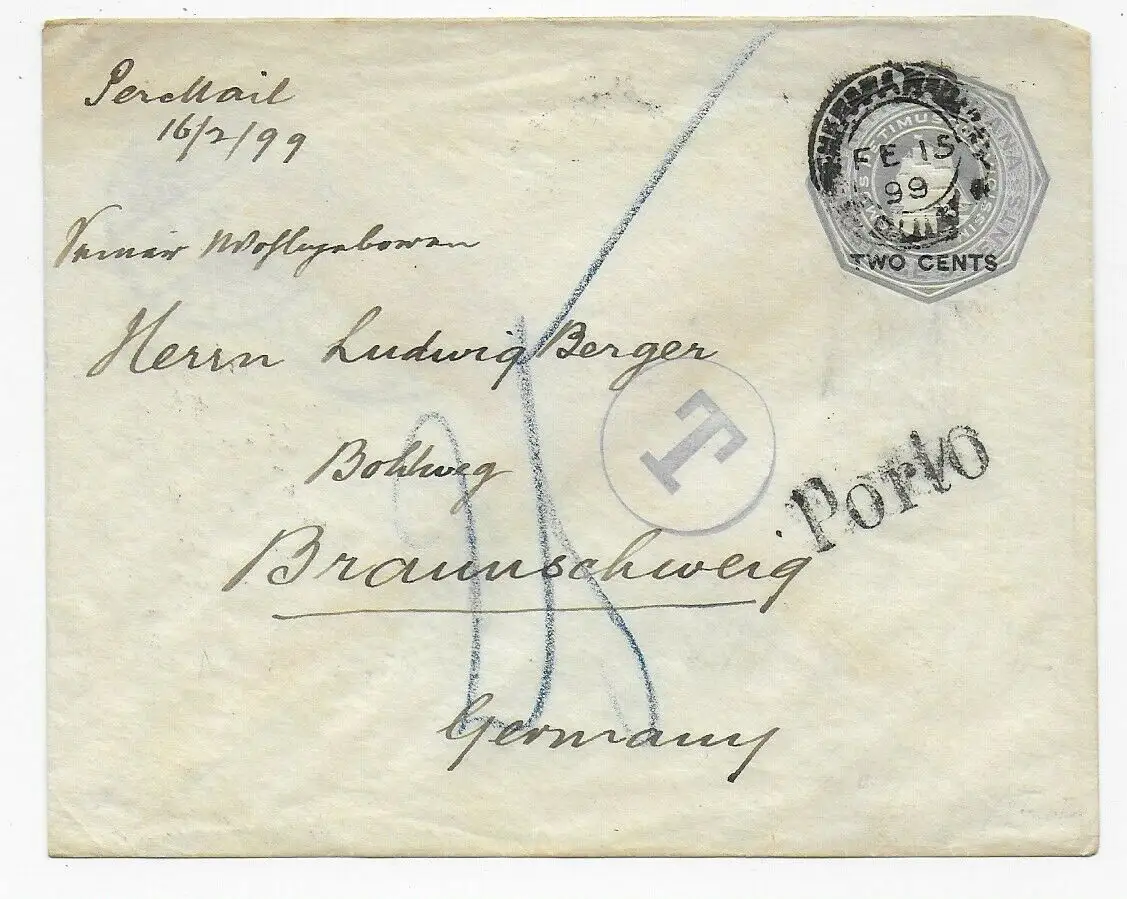 Per Mail
16/2/99
FE 15
99
TWO CENTS
Seiner Wohlgeboren
Herrn Ludwig Berger
T
Bohlweg
Porto
Braunschweig
Germany